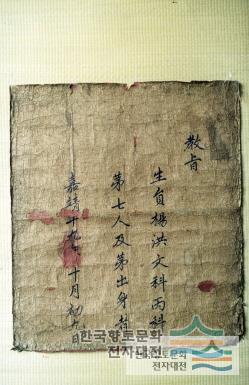 敎旨
生員楊洪文科丙科
第七人及第出身者
嘉靖十九年十月初六日
한국향토문화
전자대전
향토문화
전자대전